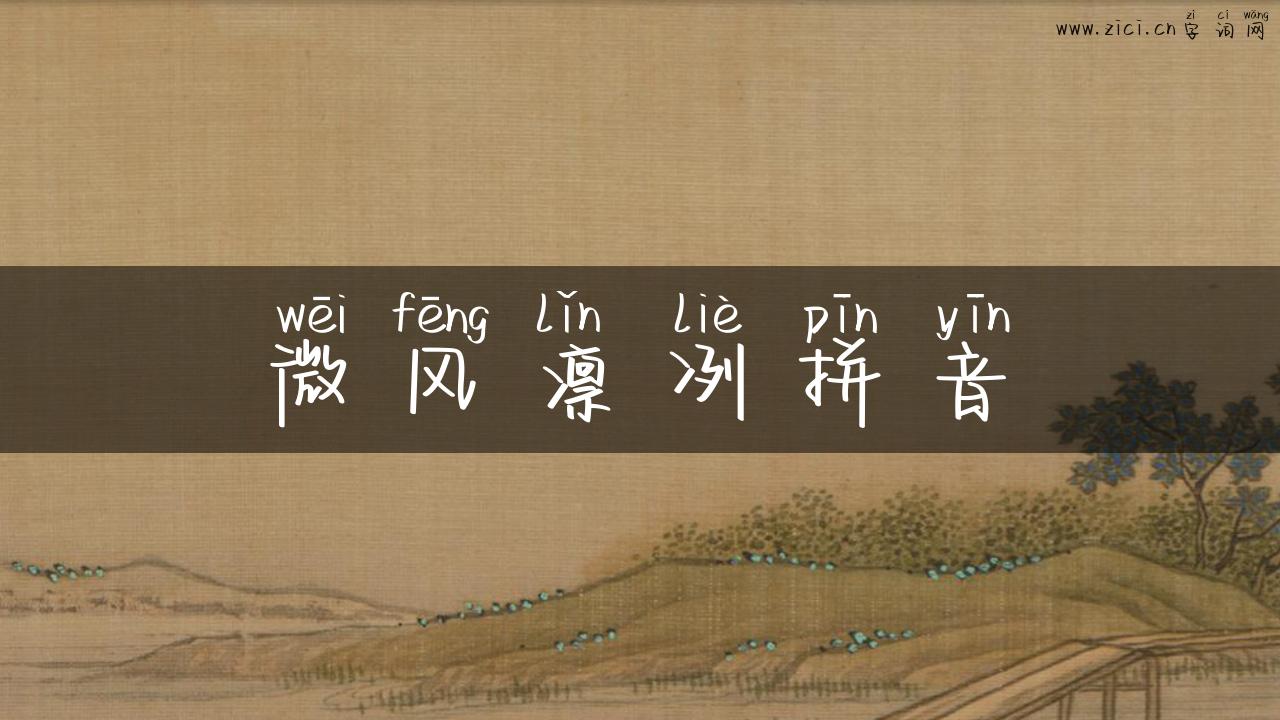 zì cí wǎng
www.zici.cn字词网
wēi fēng lǐn liè pīn yīn
微风凛冽拼音